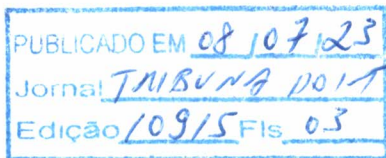 PUBLICADO EM 08 / 07 / 23
Jornal TRIBUNA DO IT
Edição 10915 Fls 03